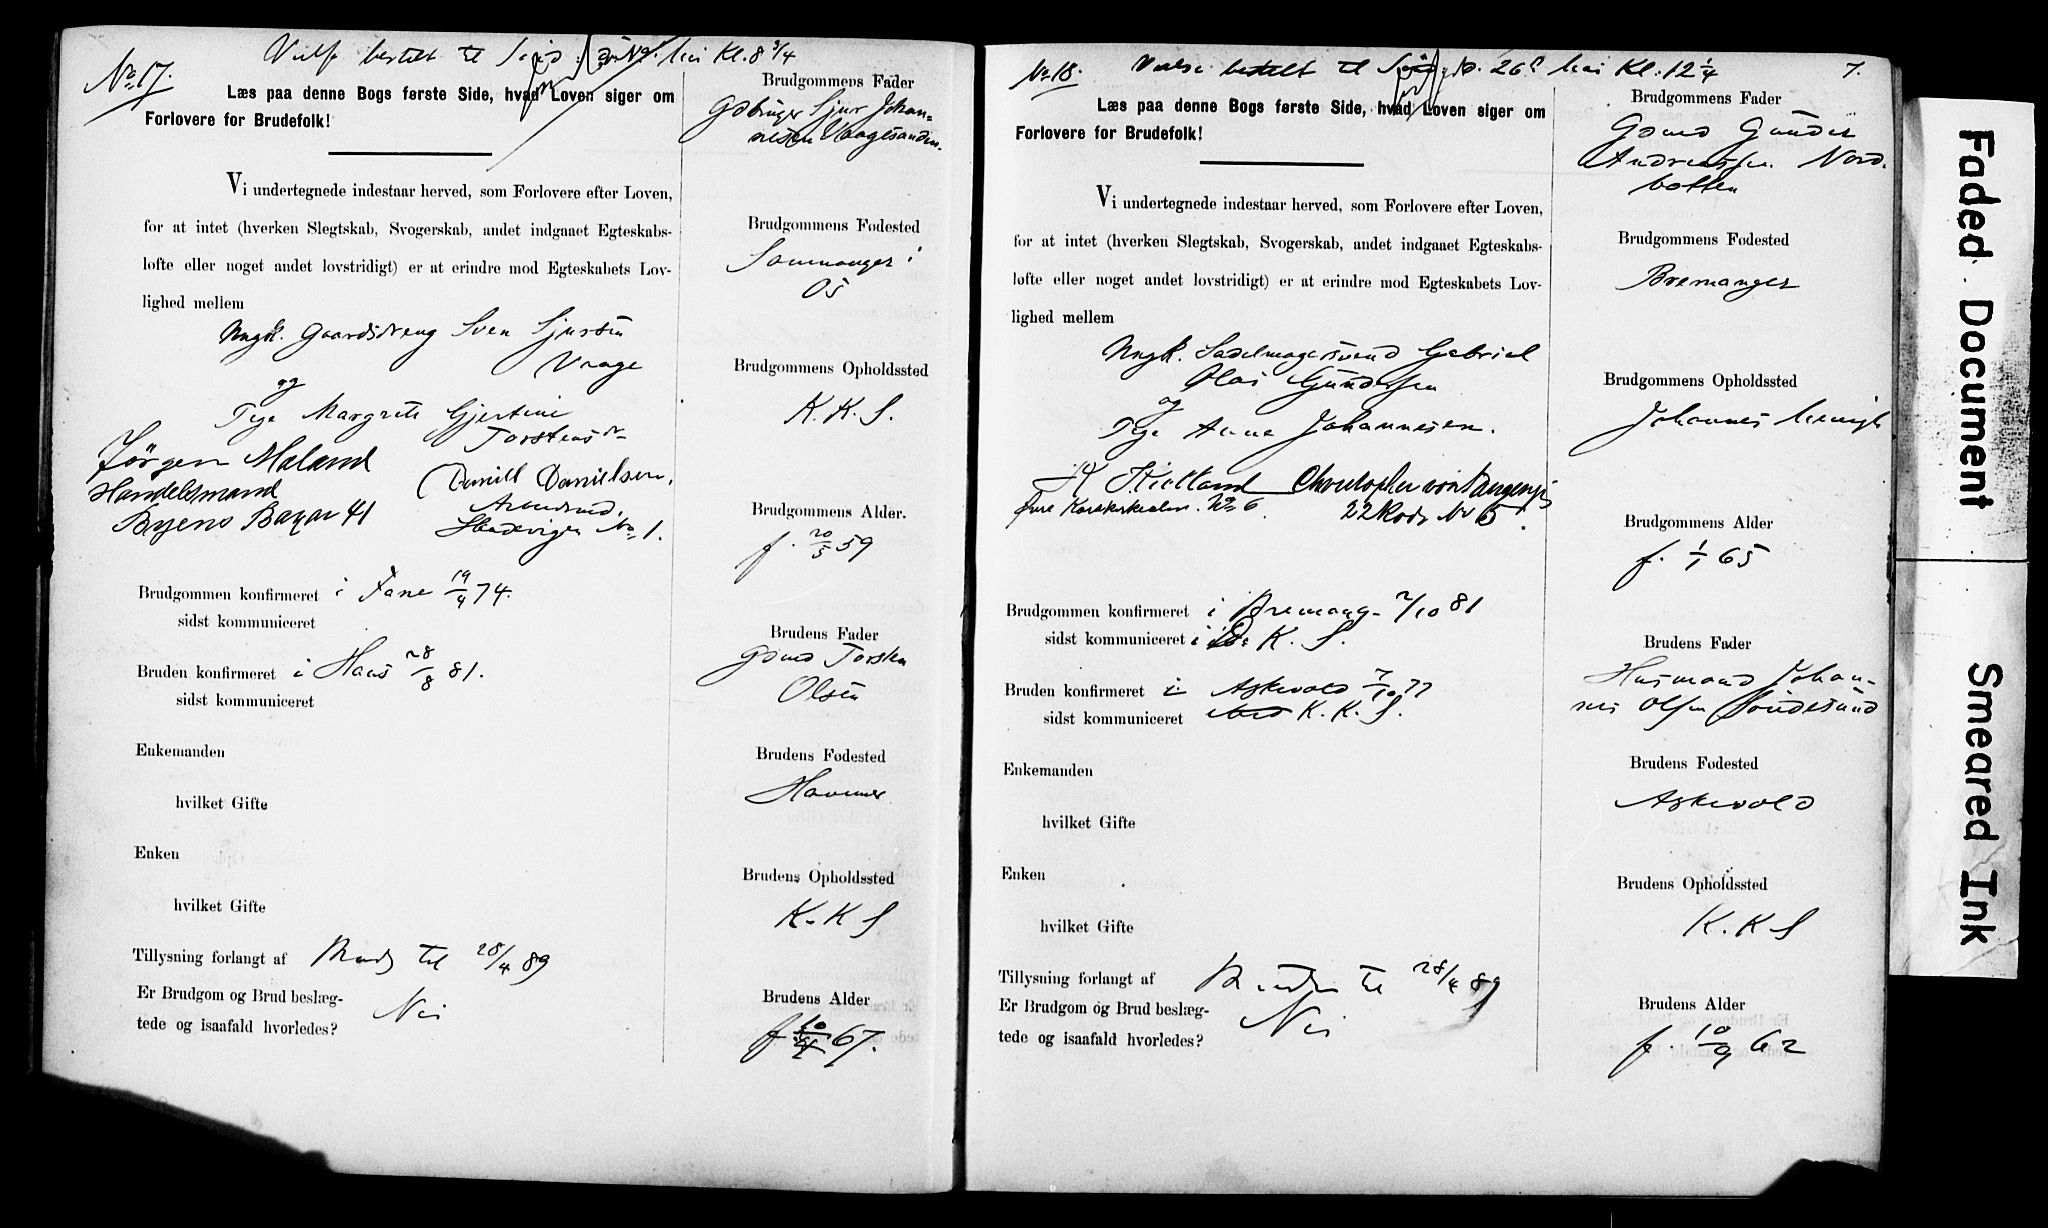 No 17.
Vielse bestilt til Kl. 8 3/4
Læs paa denne Bogs første Side, hvad Loven siger om
Forlovere for Brudefolk!
Vi undertegnede indestaar herved, som Forlovere efter Loven,
for at intet (hverken Slegtskab, Svogerskab, andet indgaaet Egteskabs-
løfte eller noget andet lovstridigt) er at erindre mod Egteskabets Lov-
lighed mellem
Ungk. Gaardsdreng Sven Sjursen
Vaage
og
Pige Margrete Gjertine
Torstensdr
Jörgen Maland
Handelsmand
Byens Bazar 41
Daniel Danielsen,
Arbeidsmd.
No 1.
Brudgommen konfirmeret i Fane 19/4 74.
sidst kommuniceret
Bruden konfirmeret i Haus 28/8 81.
sidst kommuniceret
Enkemanden
hvilket Gifte
Enken
hvilket Gifte
Tillysning forlangt af Brudg til 28/4 89
Er Brudgom og Brud beslæg-
tede og isaafald hvorledes? Nei
Brudgommens Fader
Gdbruger Sjur Johan-
nesen
Brudgommens Fødested
Samnanger i
Os
Brudgommens Opholdssted
K. K. S.
Brudgommens Alder.
f. 20/5 59
Brudens Fader
Gdmd Torsten
Olsen
Brudens Fødested
Hammer
Brudens Opholdssted
K. K S
Brudens Alder
f 10/4 67.
No 18. Vielse bestilt til 26d Mai Kl. 12 1/4
7.
Læs paa denne Bogs første Side, hvad Loven siger om
Forlovere for Brudefolk!
Vi undertegnede indestaar herved, som Forlovere efter Loven,
for at intet (hverken Slegtskab, Svogerskab, andet indgaaet Egteskabs-
løfte eller noget andet lovstridigt) er at erindre mod Egteskabets Lov-
lighed mellem
Ungk. Sadelmagersvend Gabriel
Olai Gundersen
og
Pige Anna Johannesen.
Kielland
Øvre No 6.
Christopher von Tangen
22 Rode No 5.
Brudgommen konfirmeret i Bremang. 2/10 81
sidst kommuniceret i K. S.
Bruden konfirmeret i Askevold 7/10 77
sidst kommuniceret K. K. S.
Enkemanden
hvilket Gifte
Enken
hvilket Gifte
Tillysning forlangt af til 28/4 89
Er Brudgom og Brud beslæg-
tede og isaafald hvorledes? Nei
Brudgommens Fader
Gdmd Gunder
Andreassen Nord-
botten
Brudgommens Fødested
Bremanger
Brudgommens Opholdssted
Johannes Menigh
Brudgommens Alder
f. 1/1 65
Brudens Fader
Husmand Johan-
nes Olsen
Brudens Fødested
Askevold
Brudens Opholdssted
K. K S
Brudens Alder
f. 10/9 62
Faded Document
Smeared Ink